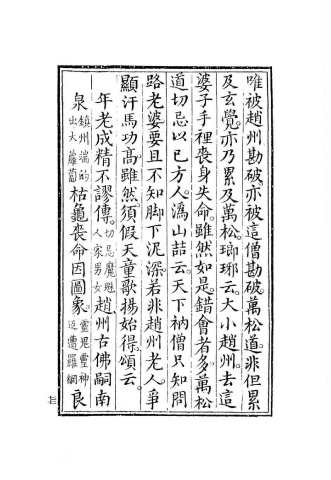 唯被趙州勘破亦被這僧勘破萬松道非但累
及玄覺亦乃累及萬松瑯琊云大小趙州去這
婆子手裡喪身失命雖然如是錯會者多萬松
道切忌以己方人溈山喆云天下衲僧只知問
路老婆要且不知脚下泥深若非趙州老人爭
顯汗馬功高雖然須假天童歌揚始得頌云
年老成精不謬傳切忌魔魅人家男女趙州古佛嗣南
泉鎮州端的出大蘿蔔枯龜喪命因圖象靈鬼靈神迤遭羅網良